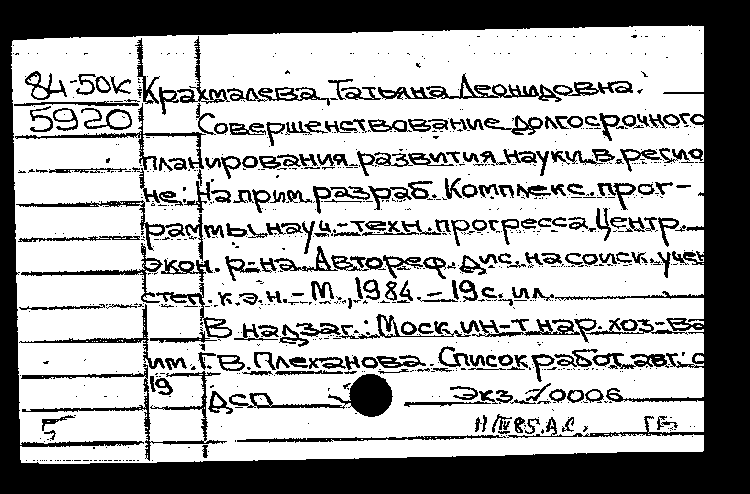 84-50К Крахмалева, Татьяна Леонидовна.
5920 Совершенствование долгосрочного
планирования развития науки в регио
не: На прим. разраб. Комплекс. прог-
раммы науч.-техн. прогресса Центр.
экон. р-на. Автореф. дис. на соиск. учен
степ. к.э.н. - М., 1984. - 19 с., ил.
В надзаг.: Моск. ин-т нар. хоз-ва
им. Г.В. Плеханова. Список работ авт.: с
19
ДСП Экз. 70006
5 11/III85.А.С. ГБ